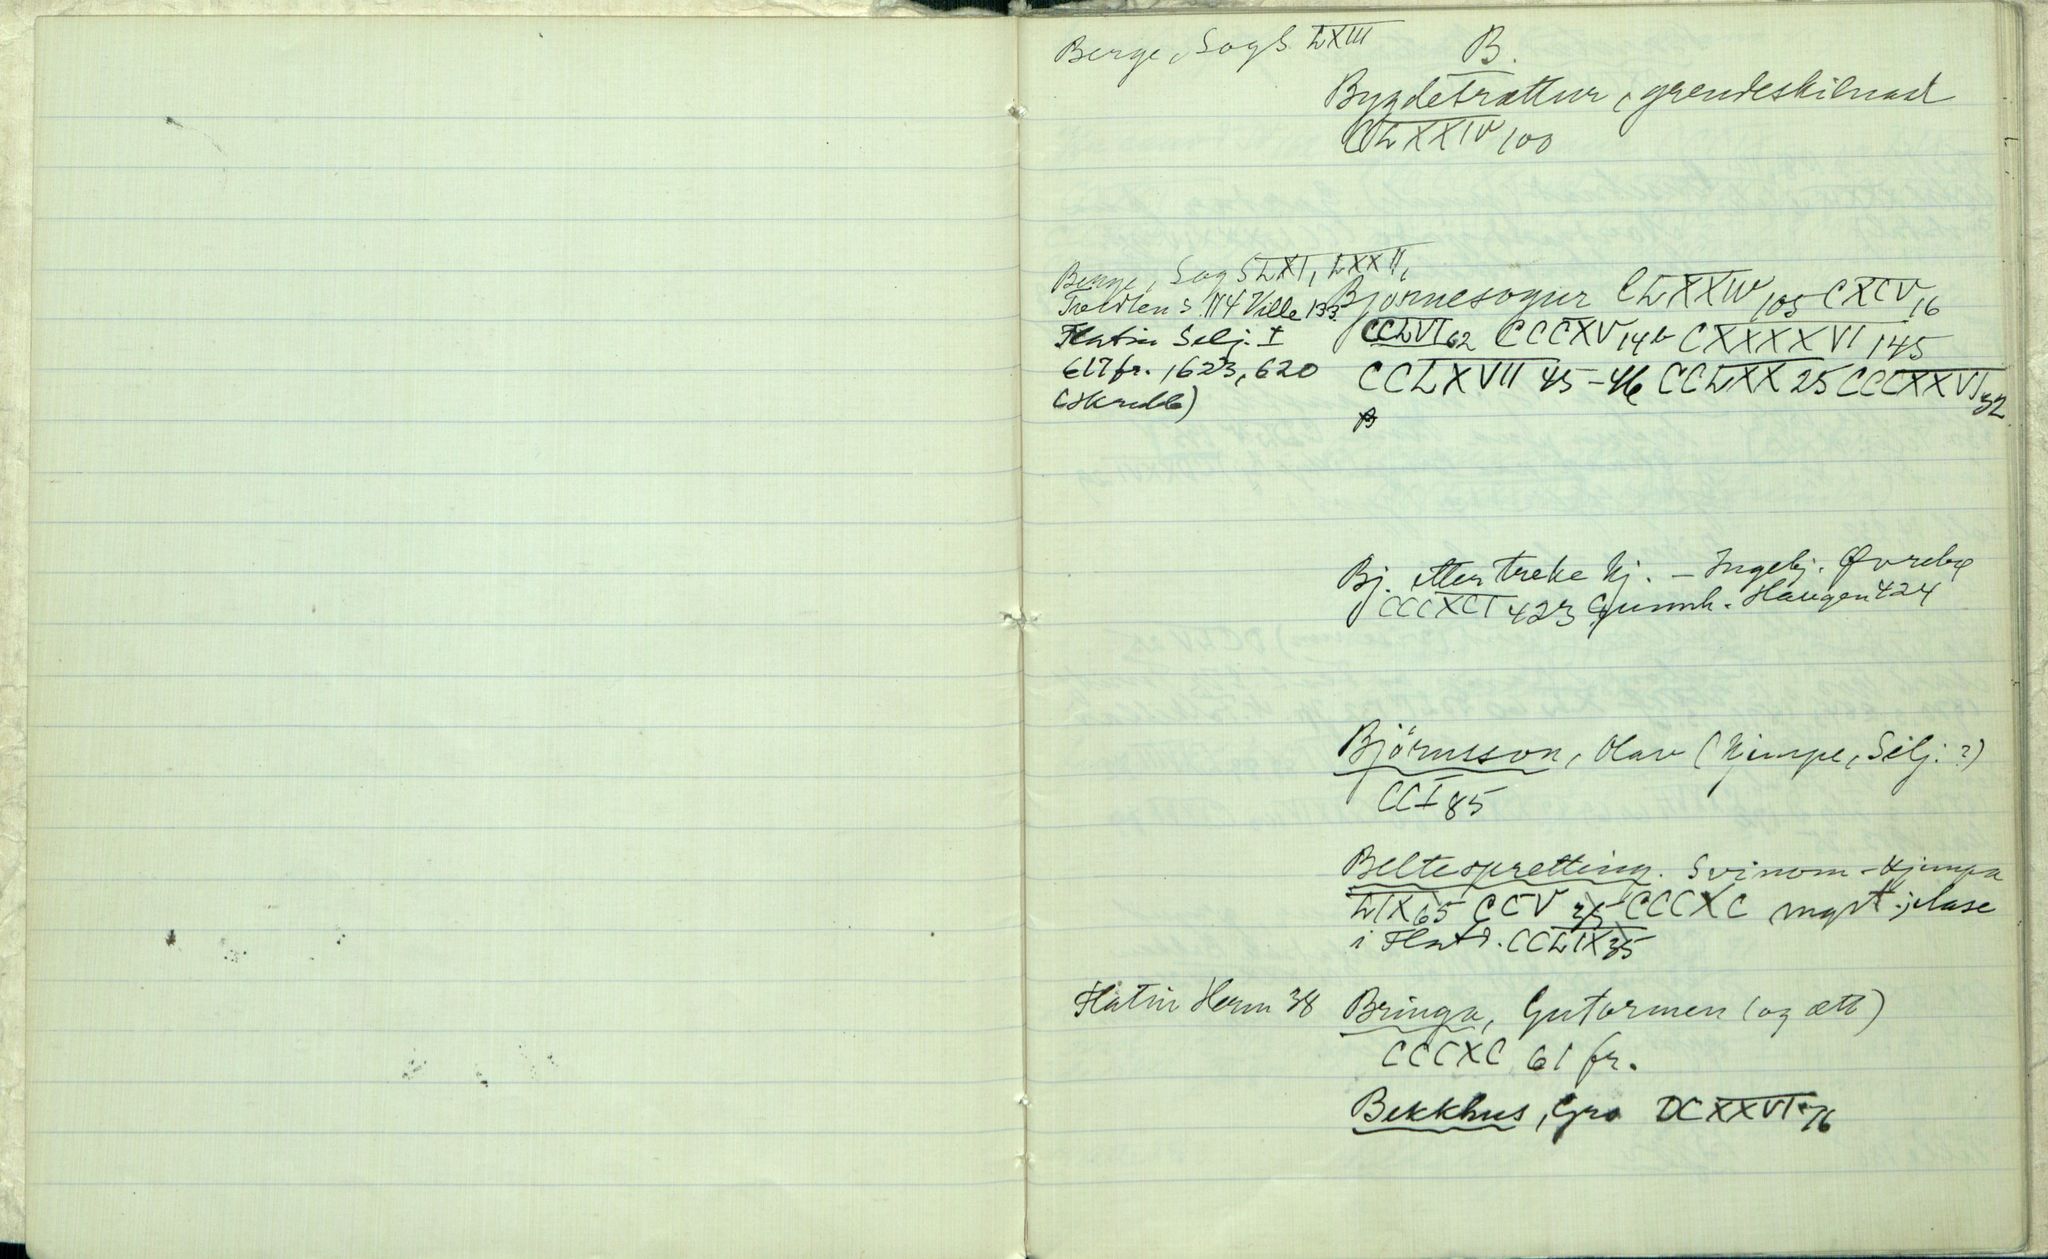 Berge, SogS LXIII
B.
Bygdetrættur, grendeskilnad
CLXXIV 100
Berge, Sog S LXI, LXXII,
S 114 Ville 133
Flatin Selj. I
617 fr., 623, 620
Bjørnesogur CLXXIV 105 CXCV 16
CCLVI 62 CCCXV 14b CXXXXVI 145
CCLXVII 45-46 CCLXX 25 CCCXXVI 32
Bj. etter treke kj. - Ingebj. Øvrebø
CCCXCI 423 Gunnh. Haugen 424
Björnsson, Olav (kjempe, Selj.?)
CCI 85
Beltespretting. Svinom - Kjempa
LIX 65 CCV 35 CCCXC
i Flatd. CCLIX 35
Flatin Herm 38
Bringa, Gutormen (og ætt)
CCCXC 61 fr.
Bekkhus, Gro DCXXVI 76